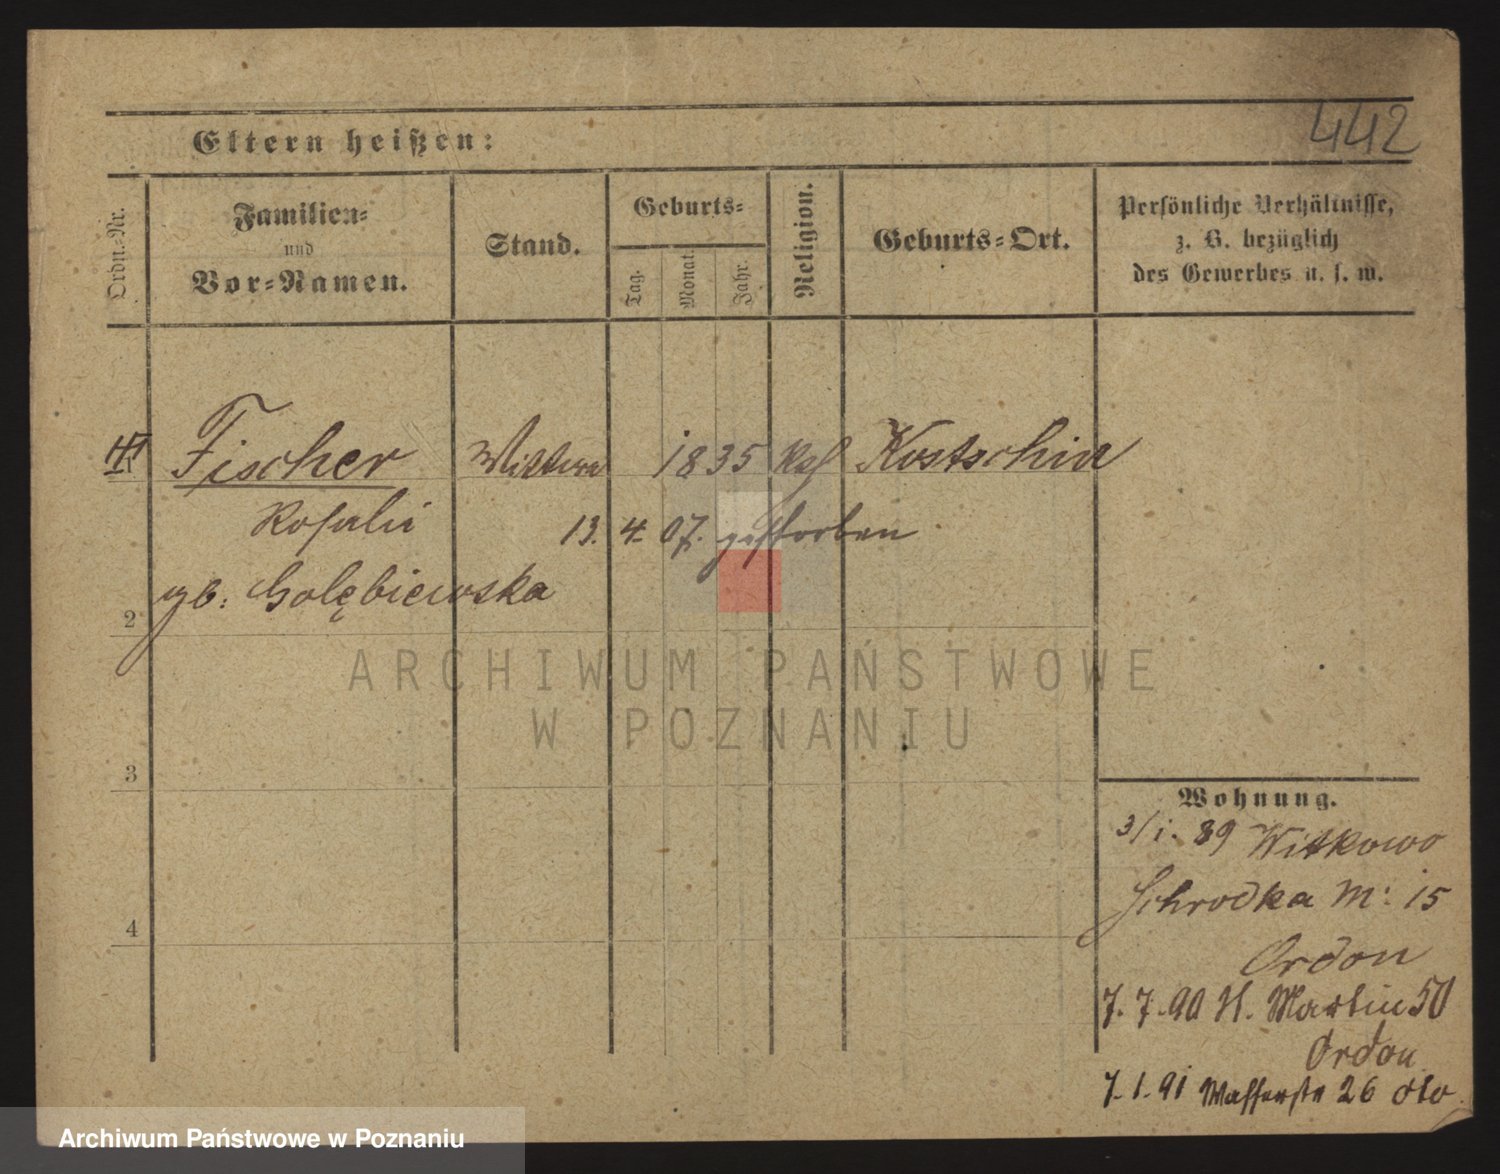 442
Eltern heißen:
Ordn.-Nr.
Familien- und Vor-Namen.
Stand.
Geburts-
Tag.
Monat.
Jahr.
Religion.
Geburts-Ort.
Persönliche Verhältnisse,
z. B. bezüglich
des Gewerbes u. s. w.
1 Fischer Wittwe 1835 kath Kostschin
Rosalie 13. 4. 07. gestorben
gb: Golębiewska
2
ARCHIWUM PAŃSTWOWE
W POZNANIU
3
Wohnung.
3/1. 89 Witkowo
Schrodka M: 15
4
Ordon
7. 7. 90 St. Martin 50
Ordon
7. 1. 91 Wasserstr 26 dto
Archiwum Państwowe w Poznaniu